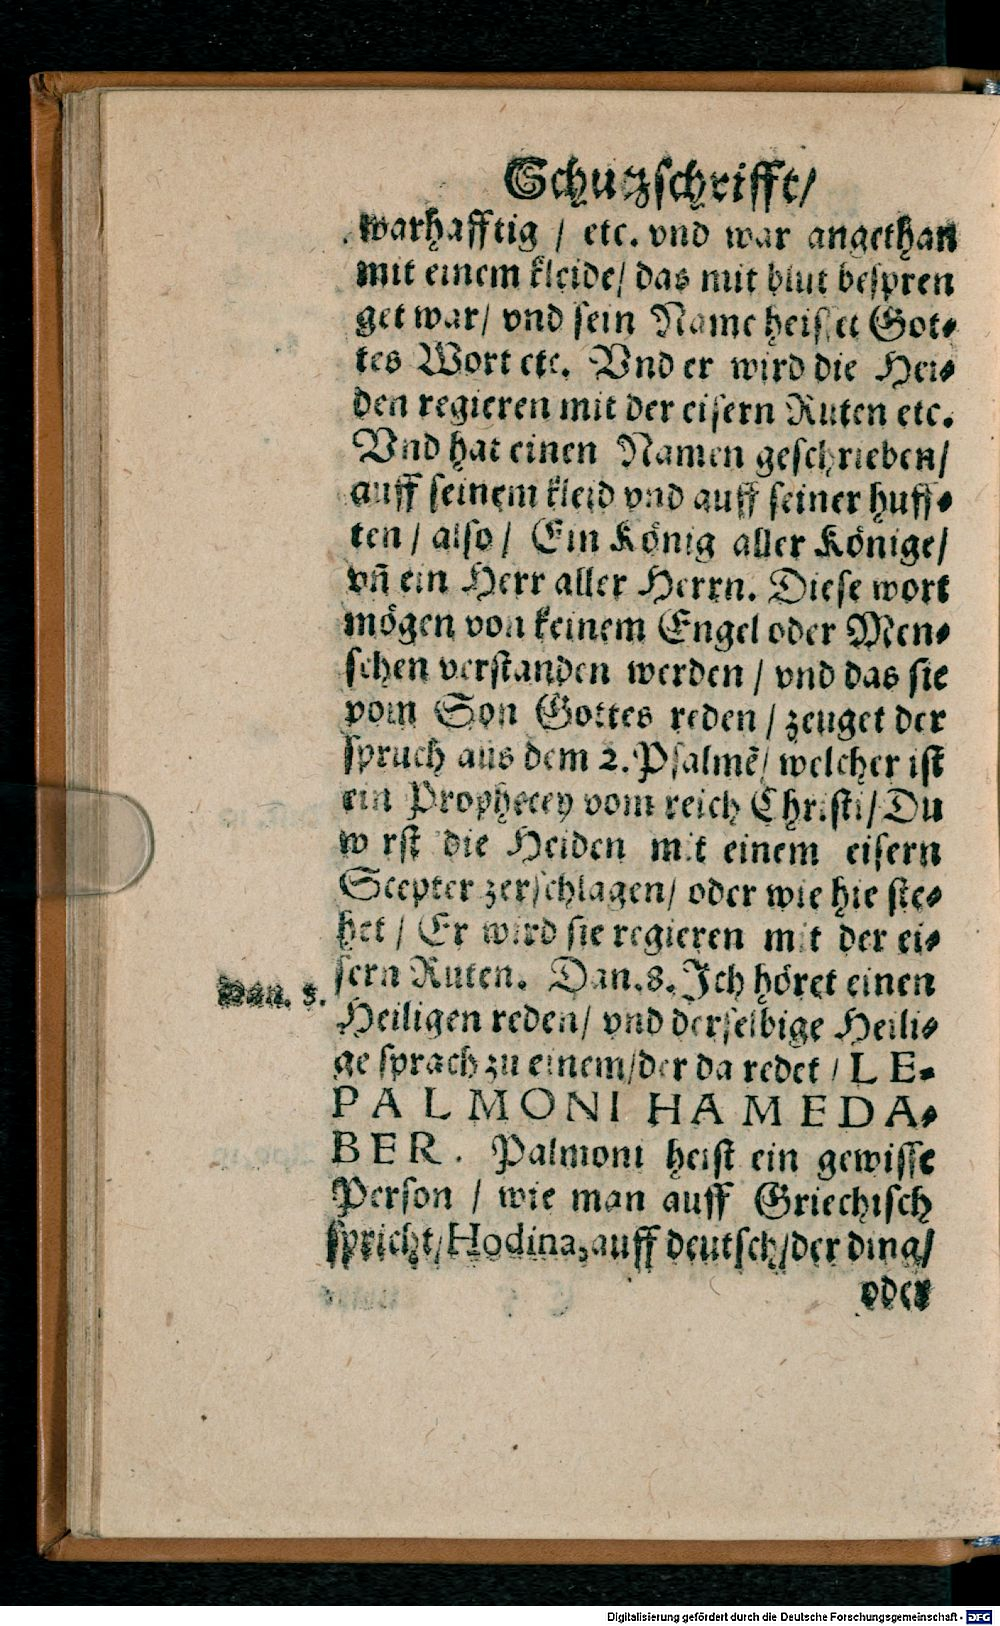 Schutzschrifft/
warhafftig / etc. vnd war angethan
mit einem kleide/ das mit blut bespren
get war/ vnd sein Name heisset Got-
tes Wort etc. Vnd er wird die Hei-
den regieren mit der eisern Ruten etc.
Vnd hat einen Namen geschrieben/
auff seinem kleid vnd auff seiner huff-
ten / also / Ein König aller Könige/
vñ ein Herr aller Herrn. Diese wort
mögen von keinem Engel oder Men-
schen verstanden werden / vnd das sie
vom Son Gottes reden / zeuget der
spruch aus dem 2. Psalmẽ/ welcher ist
ein Prophecey vom reich Christi/ Du
wirst die Heiden mit einem eisern
Scepter zerschlagen/ oder wie hie ste-
het / Er wird sie regieren mit der ei-
sern Ruten. Dan. 8. Ich höret einen
Dan. 8.
Heiligen reden/ vnd derselbige Heili-
ge sprach zu einem/der da redet / LE-
PALMONI HAMEDA-
BER. Palmoni heist ein gewisse
Person / wie man auff Griechisch
spricht/ Hodina, auff deutsch/der ding/
oder
Digitalisierung gefördert durch die Deutsche Forschungsgemeinschaft - DFG